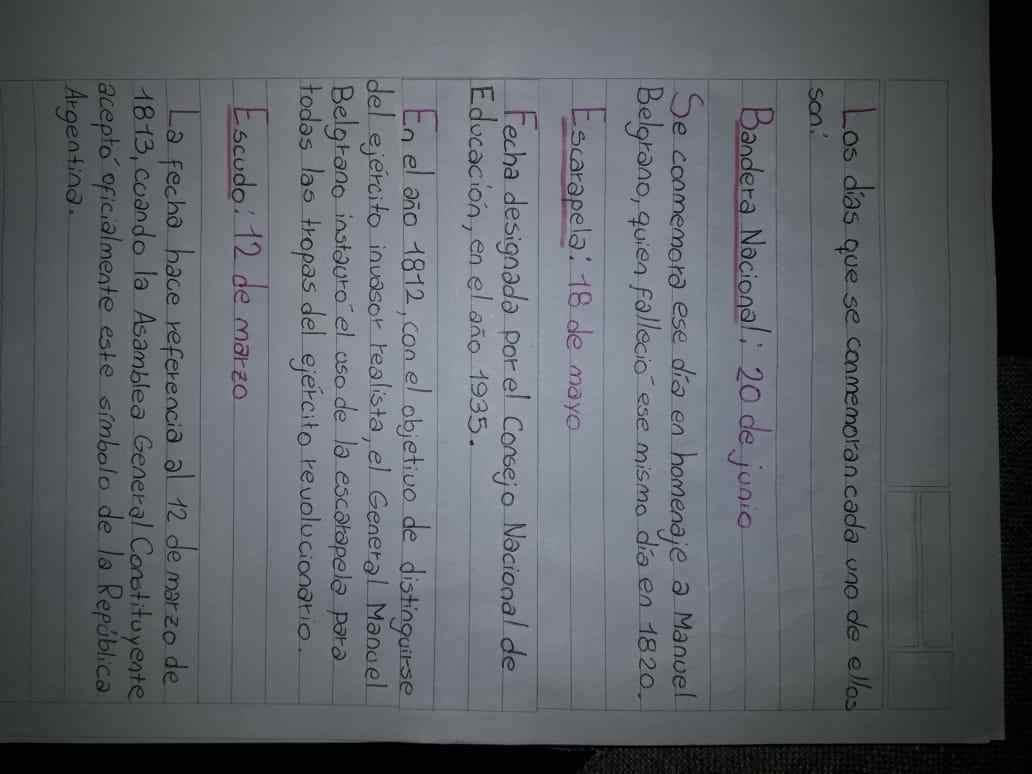 Los días que se conmemoran cada uno de ellos
son:
Bandera Nacional: 20 de junio
Se conmemora ese día en homenaje a Manuel
Belgrano, quien falleció ese mismo día en 1820.
Escarapela: 18 de mayo
Fecha designada por el Consejo Nacional de
Educación, en el año 1935.
En el año 1812, con el objetivo de distinguirse
del ejército invasor realista, el General Manuel
Belgrano instauró el uso de la escarapela para
todas las tropas del ejército revolucionario.
Escudo: 12 de marzo
La fecha hace referencia al 12 de marzo de
1813, cuando la Asamblea General Constituyente
aceptó oficialmente este símbolo de la República
Argentina.